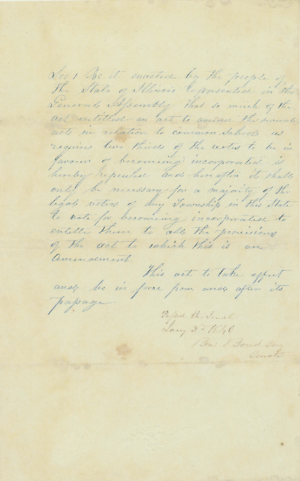 Sec 1 Be it enacted by the people of
the State of Illinois represented in the
General Assembly that so much of the
act entitled an act to amend the several
acts in relation to common schools as
requires two thirds of the votes to be in
favour of becoming incorporated is
hereby repealed and hereafter it shall
only be necessary for a majority of the
legal voters of any Township in this State
to vote for becoming incorporated to
entitle them to all the provisions
of the act to which this is an
amendment
This act to take effect
and be in force from and after its
passage